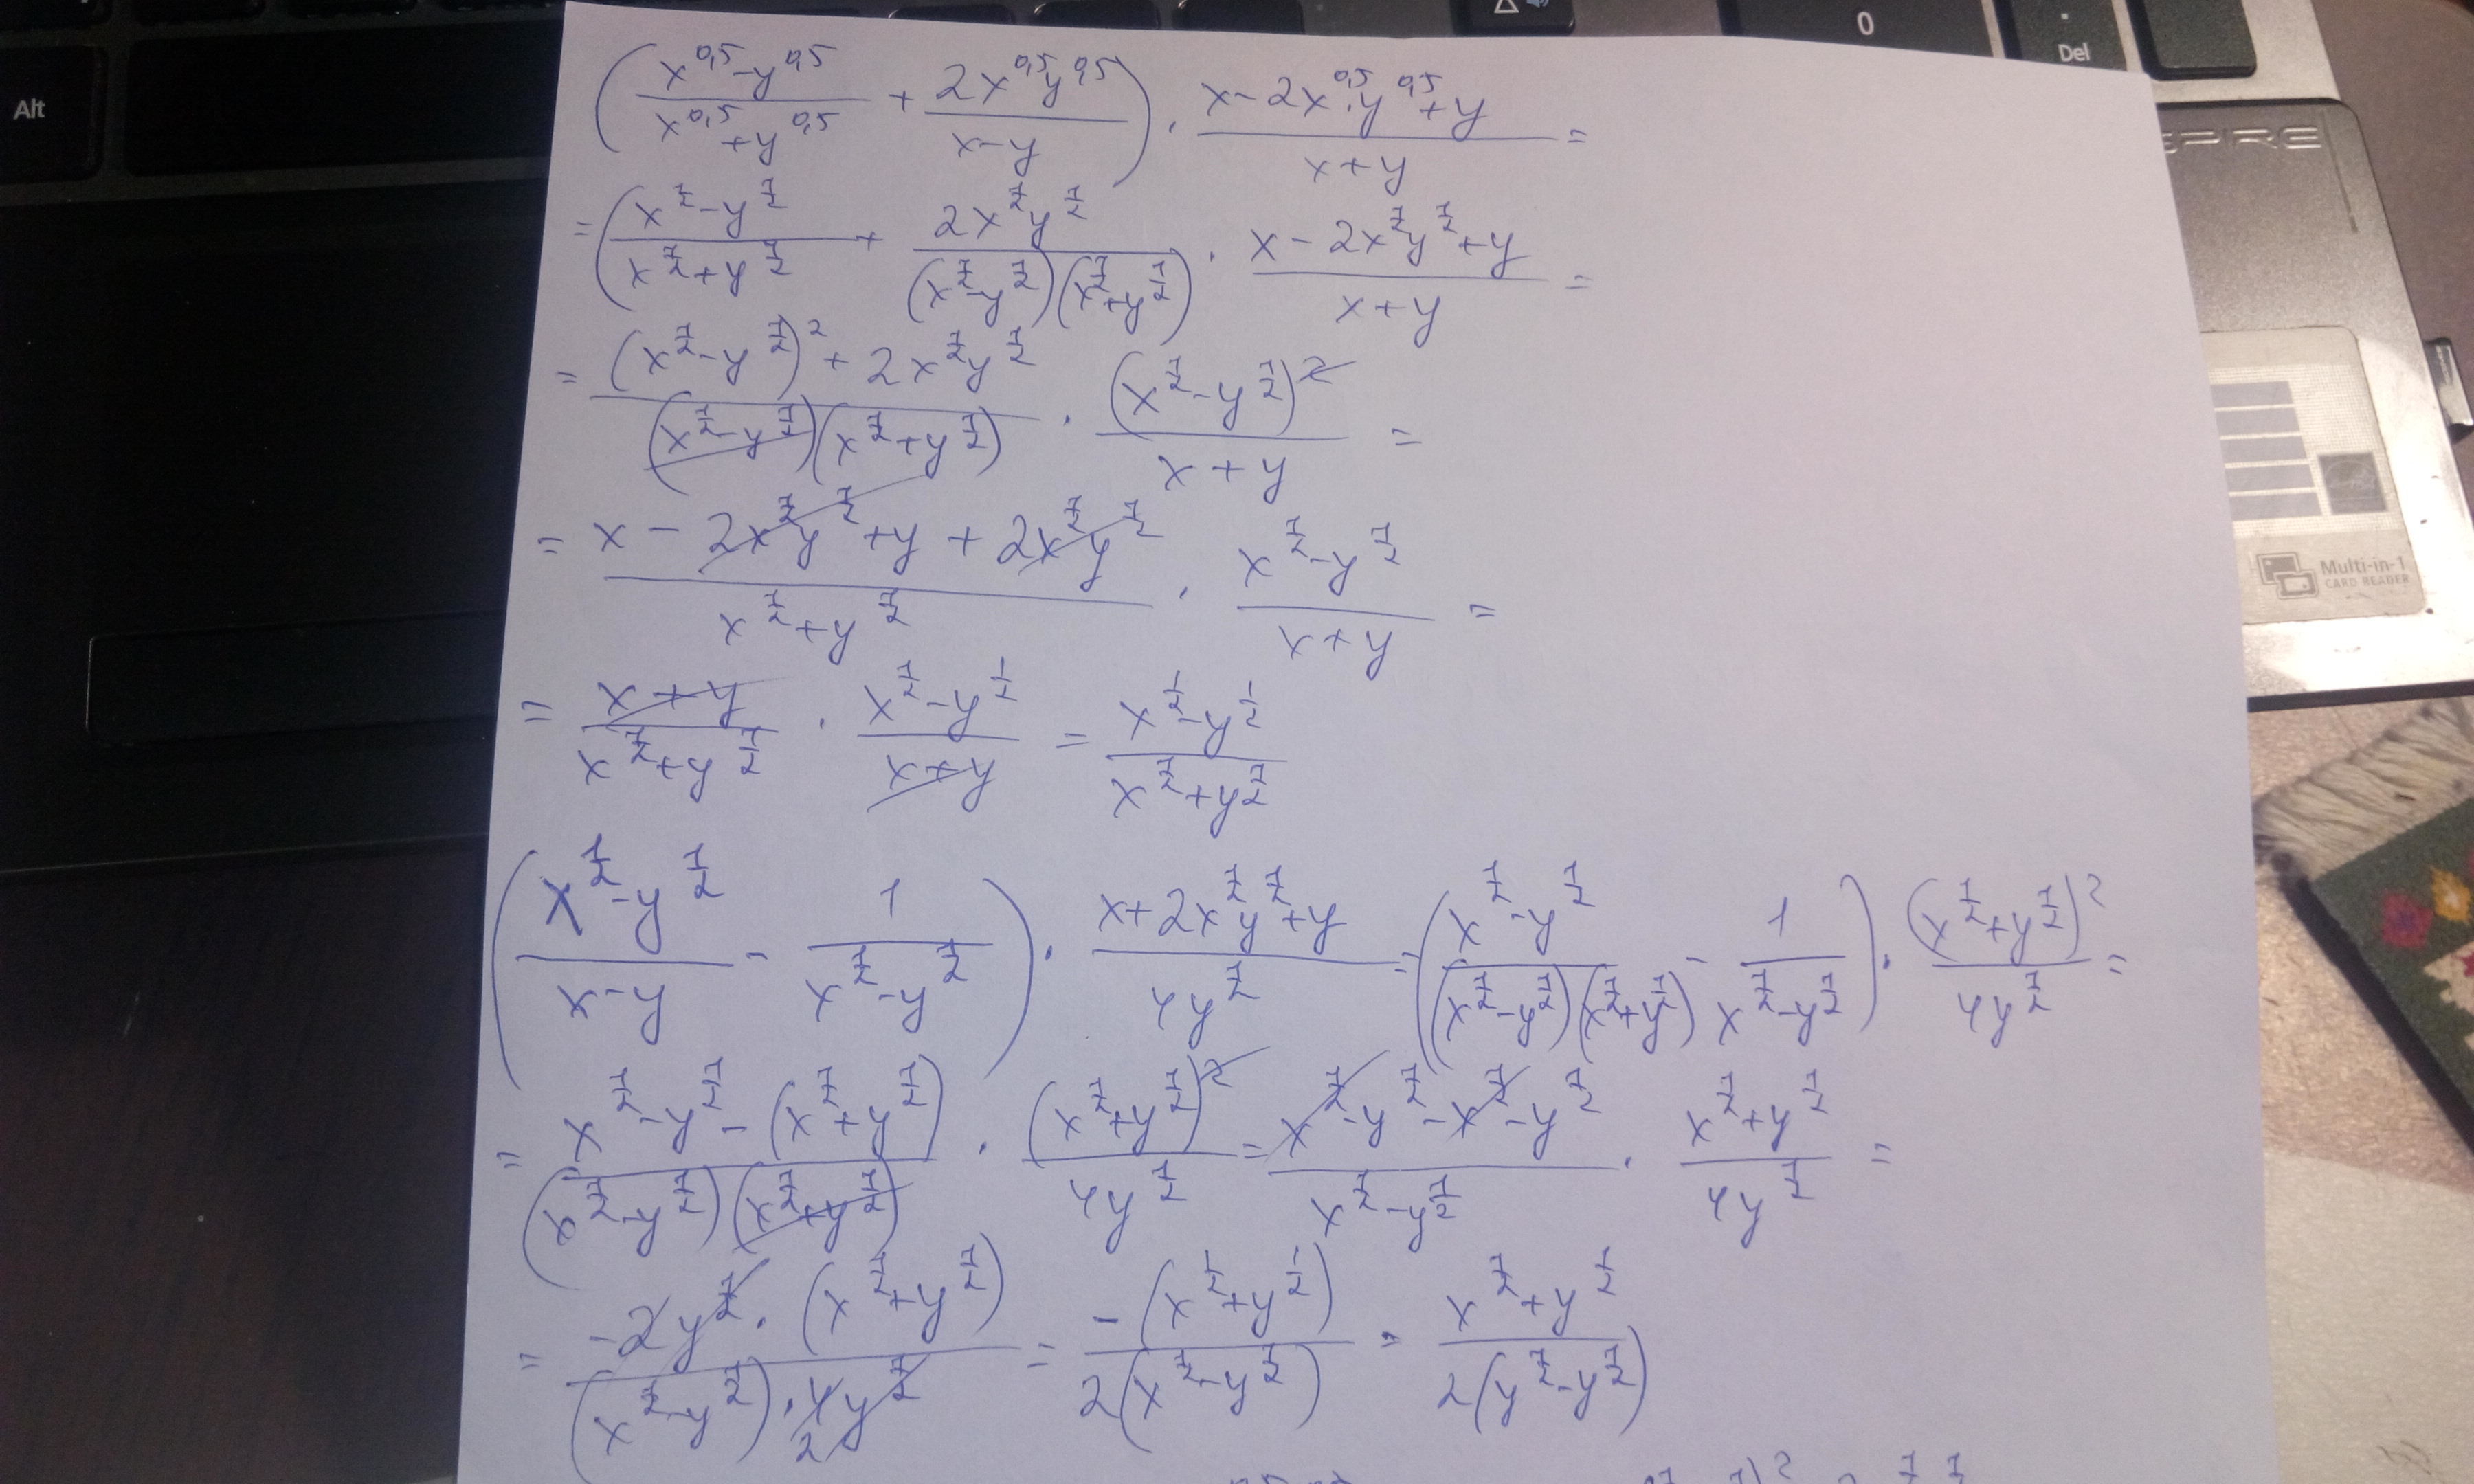 Alt
0
.
Del
SPIRE
Multi-in-1
CARD READER
(x^0,5 - y^0,5)/(x^0,5 + y^0,5) + (2x^0,5 y^0,5)/(x-y)) · (x - 2x^0,5 · y^0,5 + y)/(x+y) =
= ((x^1/2 - y^1/2)/(x^1/2 + y^1/2) + (2x^1/2 y^1/2)/((x^1/2 - y^1/2)(x^1/2 + y^1/2)) · (x - 2x^1/2 y^1/2 + y)/(x+y) =
= ((x^1/2 - y^1/2)^2 + 2x^1/2 y^1/2)/((x^1/2 - y^1/2)(x^1/2 + y^1/2)) · (x^1/2 - y^1/2)^2/(x+y) =
= (x - 2x^1/2 y^1/2 + y + 2x^1/2 y^1/2)/(x^1/2 + y^1/2) · (x^1/2 - y^1/2)/(x+y) =
= (x+y)/(x^1/2 + y^1/2) · (x^1/2 - y^1/2)/(x+y) = (x^1/2 - y^1/2)/(x^1/2 + y^1/2)
((x^1/2 - y^1/2)/(x-y) - 1/(x^1/2 - y^1/2)) · (x + 2x^1/2 y^1/2 + y)/(4y^1/2) = ((x^1/2 - y^1/2)/((x^1/2 - y^1/2)(x^1/2 + y^1/2)) - 1/(x^1/2 - y^1/2)) · (x^1/2 + y^1/2)^2/(4y^1/2) =
= (x^1/2 - y^1/2 - (x^1/2 + y^1/2))/((x^1/2 - y^1/2)(x^1/2 + y^1/2)) · (x^1/2 + y^1/2)^2/(4y^1/2) = (x^1/2 - y^1/2 - x^1/2 - y^1/2)/(x^1/2 - y^1/2) · (x^1/2 + y^1/2)/(4y^1/2) =
= (-2y^1/2 · (x^1/2 + y^1/2))/((x^1/2 - y^1/2) · 4y^1/2) 2 = -(x^1/2 + y^1/2)/(2(x^1/2 - y^1/2)) = (x^1/2 + y^1/2)/(2(y^1/2 - y^1/2))